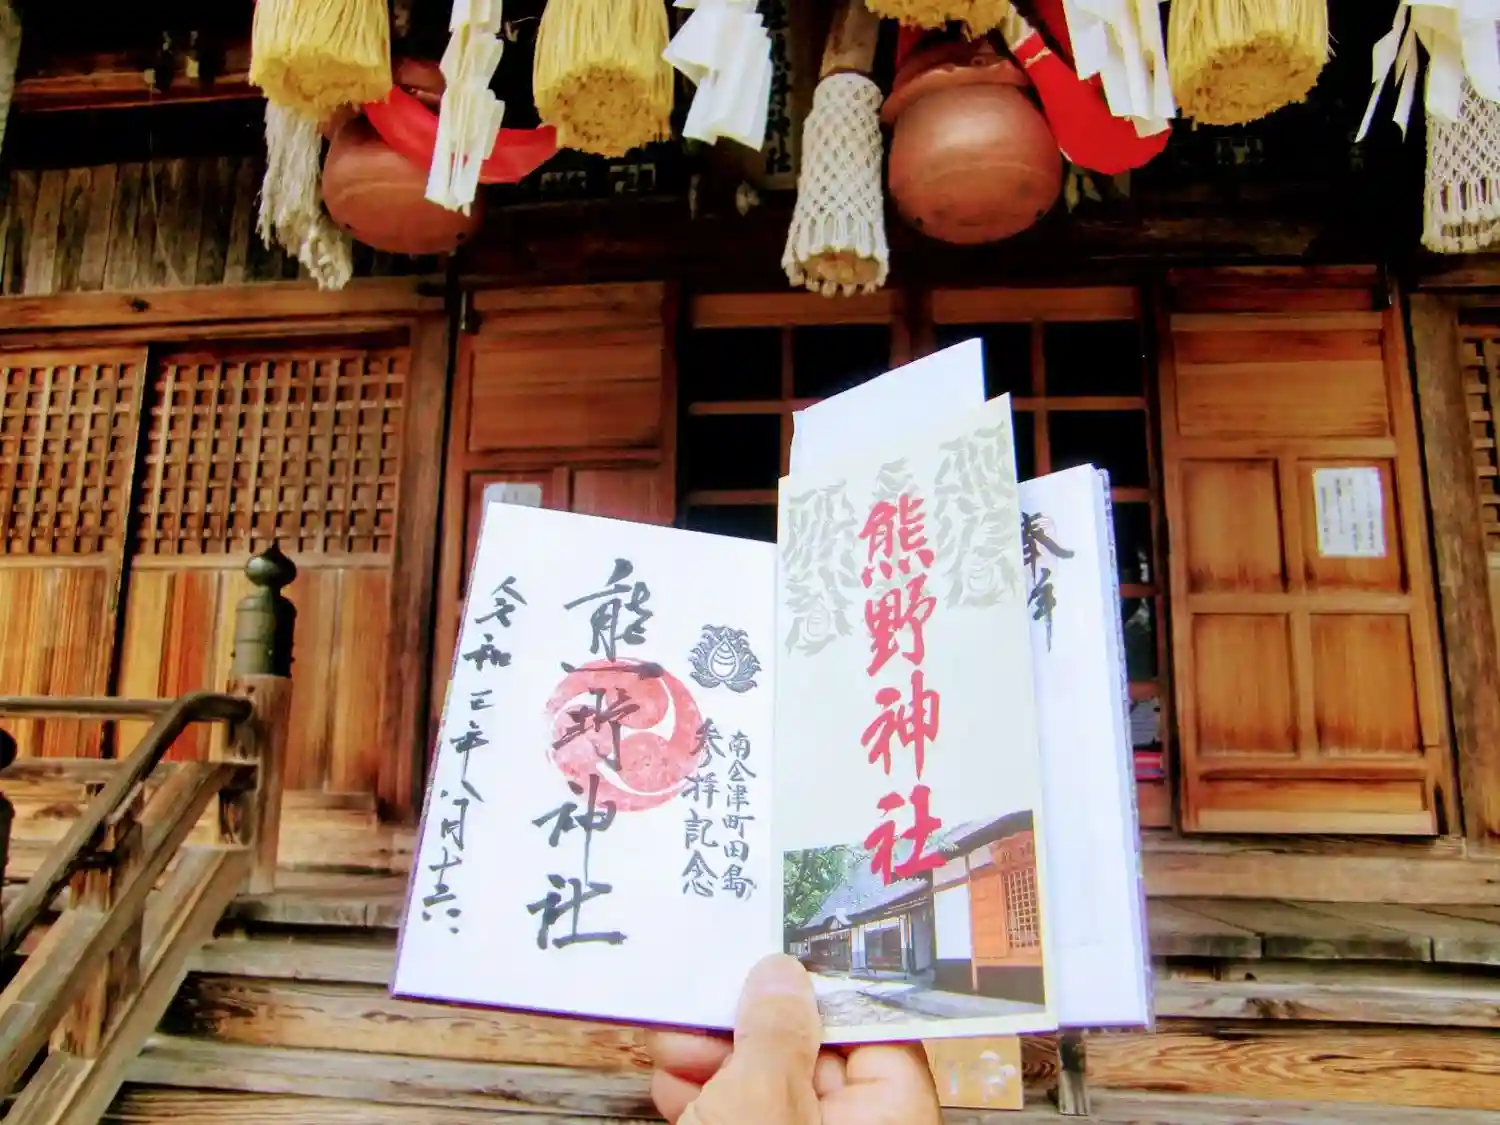 奉拝
熊野神社
南会津町田島
参拝記念
熊野神社
令和三年八月十六